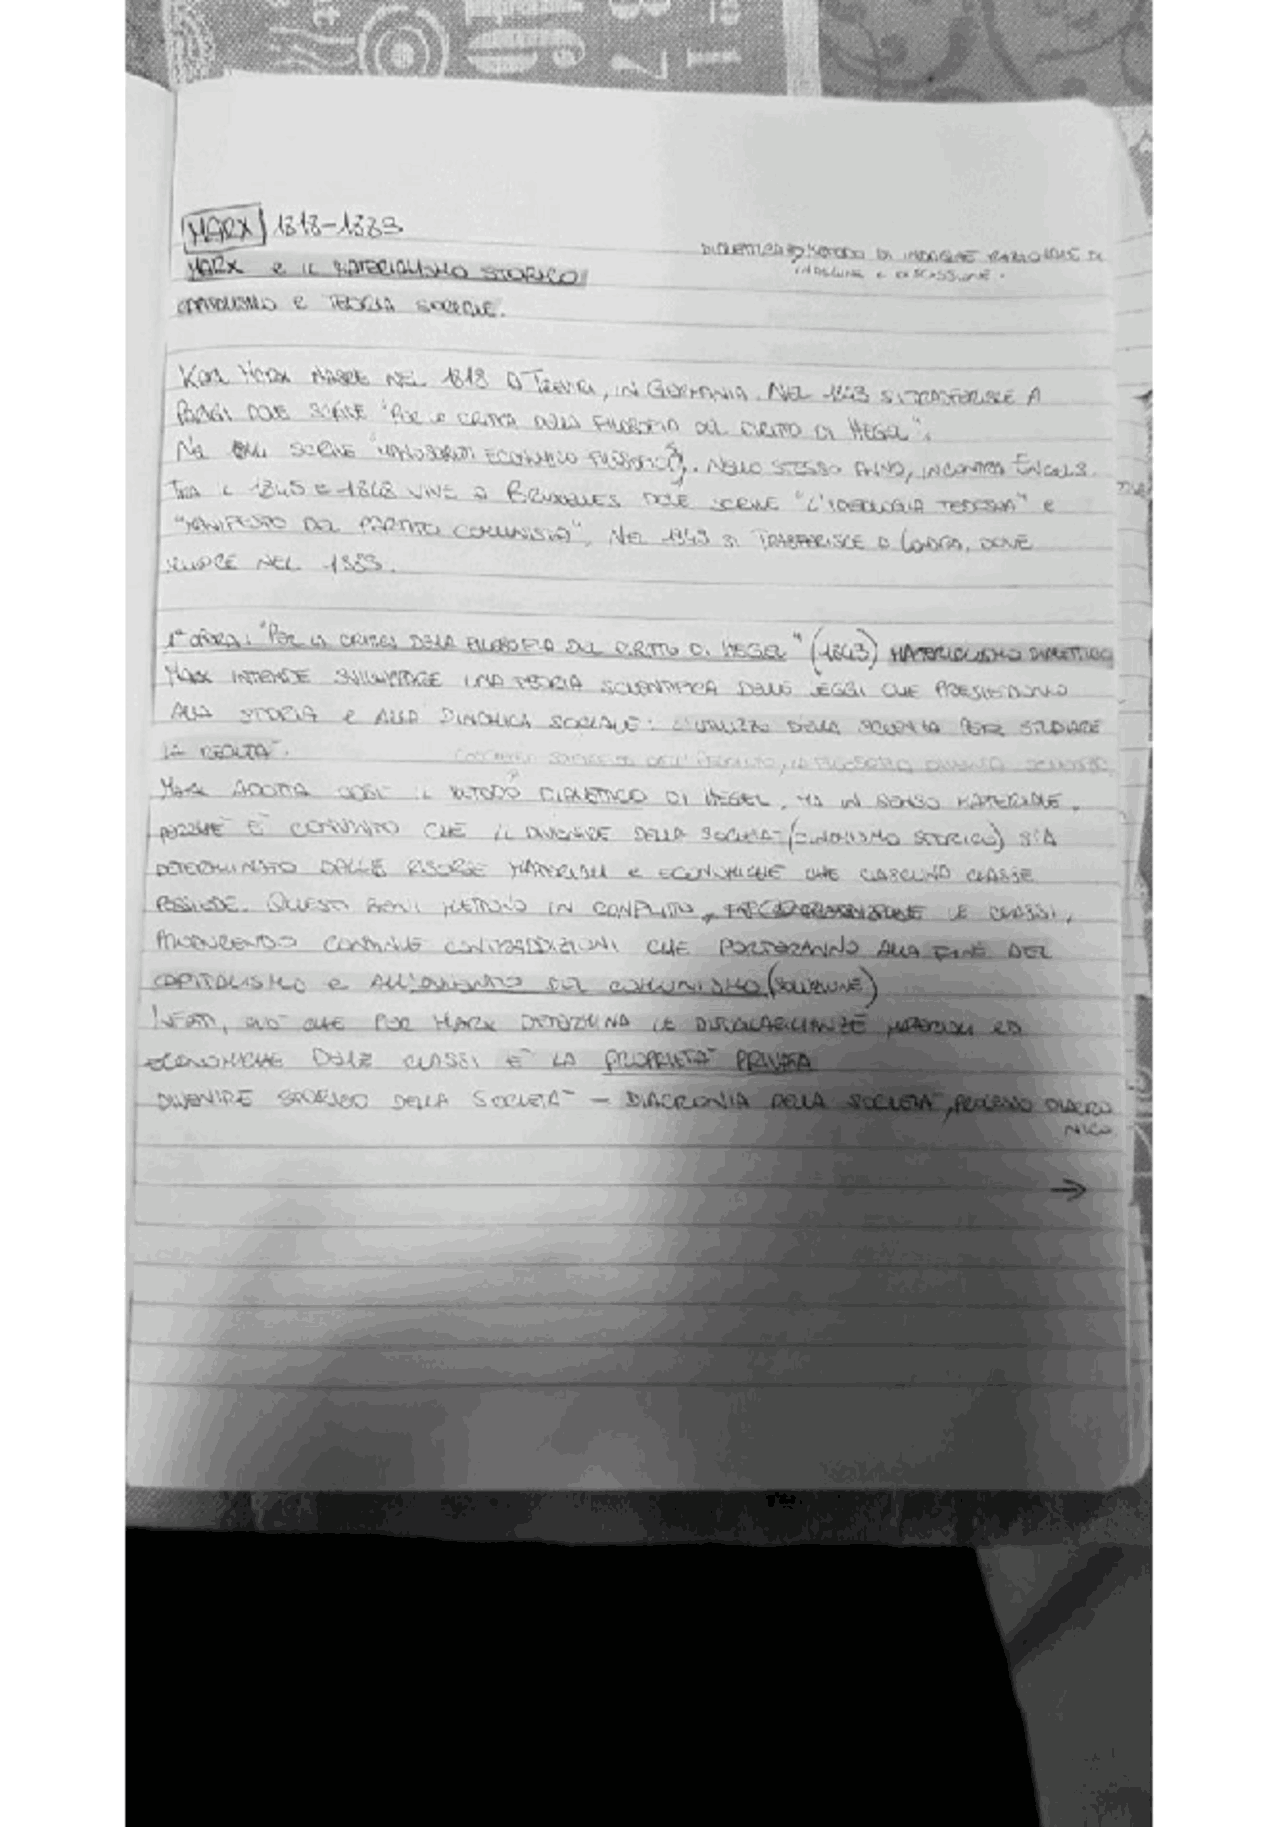 MARX 1818-1883
DIALETTICA → METODO DI INDAGINE RAZIONALE DI
INDAGINE E DISCUSSIONE.
MARX e IL MATERIALISMO STORICO
CAPITALISMO E TEORIA SOCIALE.
Karl Marx NASCE NEL 1818 A TREVIRI, IN GERMANIA. NEL 1843 SI TRASFERISCE A
PARIGI DOVE SCRIVE "Per la CRITICA DELLA FILOSOFIA DEL DIRITTO DI HEGEL".
Nel SCRIVE "MANOSCRITTI ECONOMICO FILOSOFICI". NELLO STESSO ANNO, INCONTRA ENGELS.
TRA IL 1845 E 1848 VIVE A BRUXELLES DOVE SCRIVE "L'IDEOLOGIA TEDESCA" e
"MANIFESTO DEL PARTITO COMUNISTA". NEL 1849 SI TRASFERISCE A LONDRA, DOVE
MUORE NEL 1883.
1ª OPERA: "PER LA CRITICA DELLA FILOSOFIA DEL DIRITTO DI HEGEL" (1843) MATERIALISMO DIALETTICO
MARX INTENDE SVILUPPARE UNA TEORIA SCIENTIFICA DELLE LEGGI CHE PRESIEDONO
ALLA STORIA e ALLA DINAMICA SOCIALE: L'UTILIZZO DELLA SCIENZA PER STUDIARE
LA REALTÀ.
MARX ADOTTA COSÌ IL METODO DIALETTICO DI HEGEL, MA IN SENSO MATERIALE,
POICHÉ È CONVINTO CHE IL DIVENIRE DELLA SOCIETÀ (DINAMISMO STORICO) SIA
DETERMINATO DALLE RISORSE MATERIALI e ECONOMICHE CHE CIASCUNA CLASSE
POSSIEDE. QUESTI BENI METTONO IN CONFLITTO LE CLASSI,
PRODUCENDO CONTINUE CONTRADDIZIONI CHE PORTERANNO ALLA FINE DEL
CAPITALISMO e ALL'AVVENTO DEL COMUNISMO (SOLUZIONE)
INFATTI, CIÒ CHE PER MARX DETERMINA LE DISUGUAGLIANZE MATERIALI ED
ECONOMICHE DELLE CLASSI È LA PROPRIETÀ PRIVATA
DIVENIRE STORICO DELLA SOCIETÀ - DIACRONIA DELLA SOCIETÀ, PROCESSO DIACRO
NICO.
→